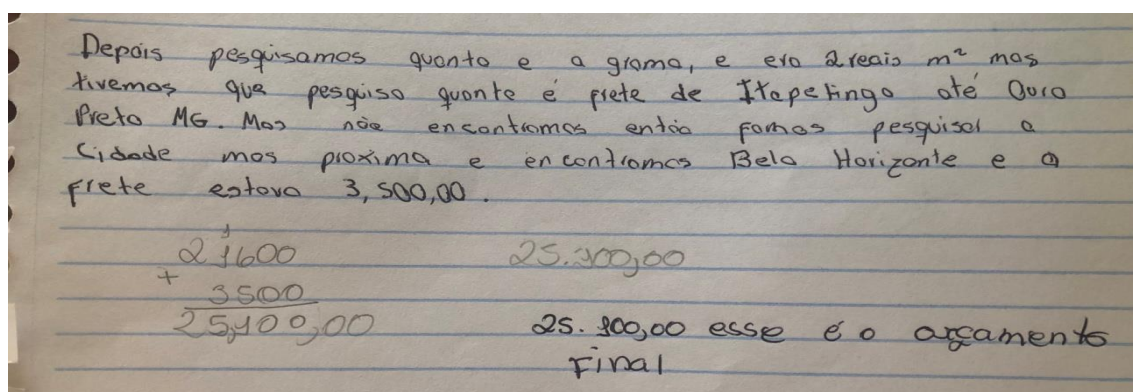 Depois pesquisamos quanto e a grama, e era 2 reais m² mas
tivemos que pesquiso quonte é frete de Itapetinga até Ouro
Preto MG. Mas não encontramos então fomos pesquisar a
Cidade mas proxima e encontramos Belo Horizonte e o
frete estava 3,500,00.
1
21600 25.100,00
+
3500
25,100,00
25.100,00 esse é o orçamento
Final